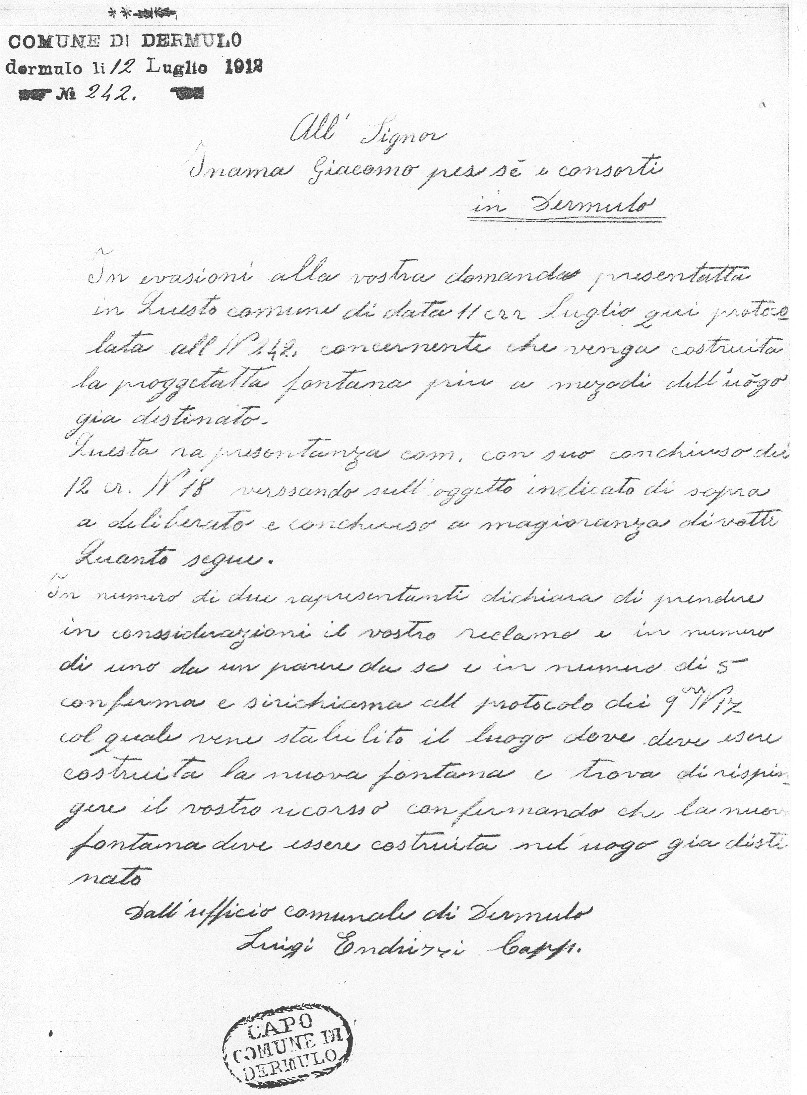 COMUNE DI DERMULO
dermulo li 12 Luglio 1912
№ 242.
All' Signor
Inama Giacomo per sè e consorti
in Dermulo
In evasioni alla vostra domanda presentatta
in Questo comune di data 11 crr Luglio qui protoco
lata all N 242. concernente che venga costruita
la proggetatta fontana piu a mezadi dell'uogo
gia destinato.
Questa rapresentanza com. con suo conchiuso dei
12 cr. N 18 verssando sull'oggetto indicato di sopra
a deliberato e conchiuso a magioranza di votti
Quanto segue.
In numero di due rapresentanti dichiara di prendere
in considerazioni il vostro reclamo e in numero
di uno da un parere da se e in numero di 5
conferma e si richiama all protocolo dei 9 crr N 17
col quale vene stabulito il luogo dove deve esere
costruita la nuova fontana e trova di rispin
gere il vostro ricorsso confermando che la nuov
fontana deve essere costruita nel'uogo gia disti
nato
Dall'ufficio comunale di Dermulo
Luigi Endrizzi Capp.
CAPO
COMUNE DI
DERMULO